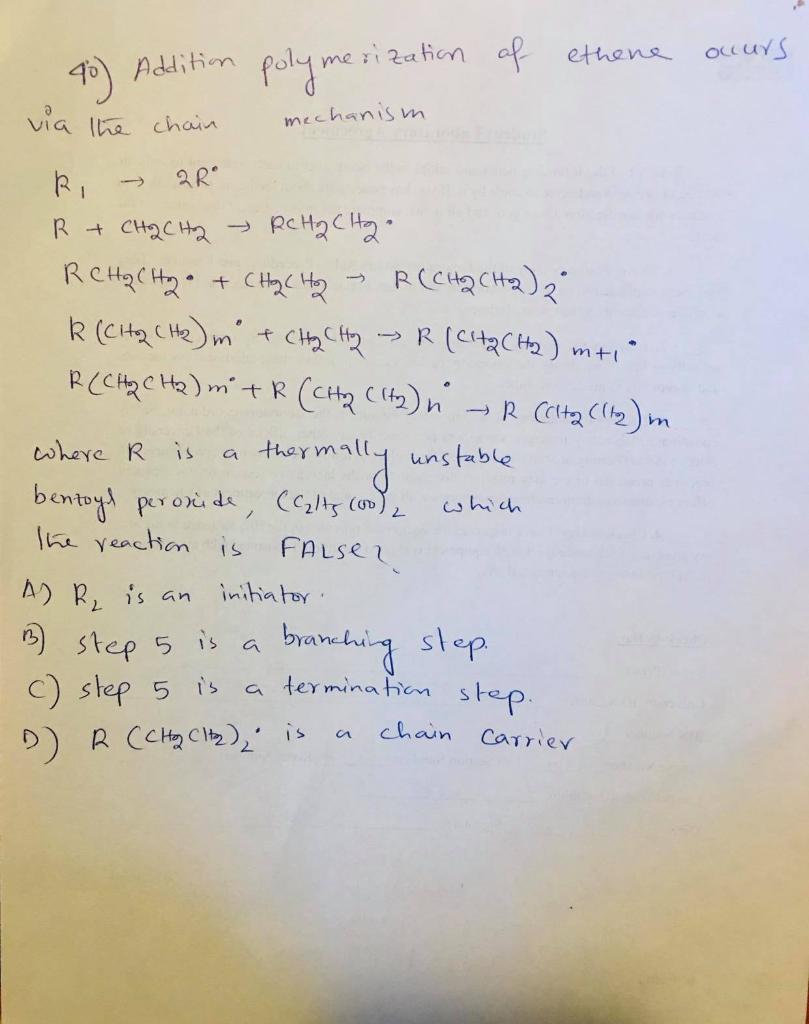 40) Addition polymerization of ethene occurs
via the chain mechanism
R1 → 2R•
R + CH2CH2 → RCH2CH2•
RCH2CH2• + CH2CH2 → R(CH2CH2)2•
R(CH2CH2)m• + CH2CH2 → R(CH2CH2)m+1•
R(CH2CH2)m• + R(CH2CH2)n• → R(CH2CH2)m
where R is a thermally unstable
bentoyl peroxide, (C2H5COO)2 which
the reaction is FALSE?
A) R2 is an initiator.
B) step 5 is a branching step.
C) step 5 is a termination step.
D) R(CH2CH2)2• is a chain carrier